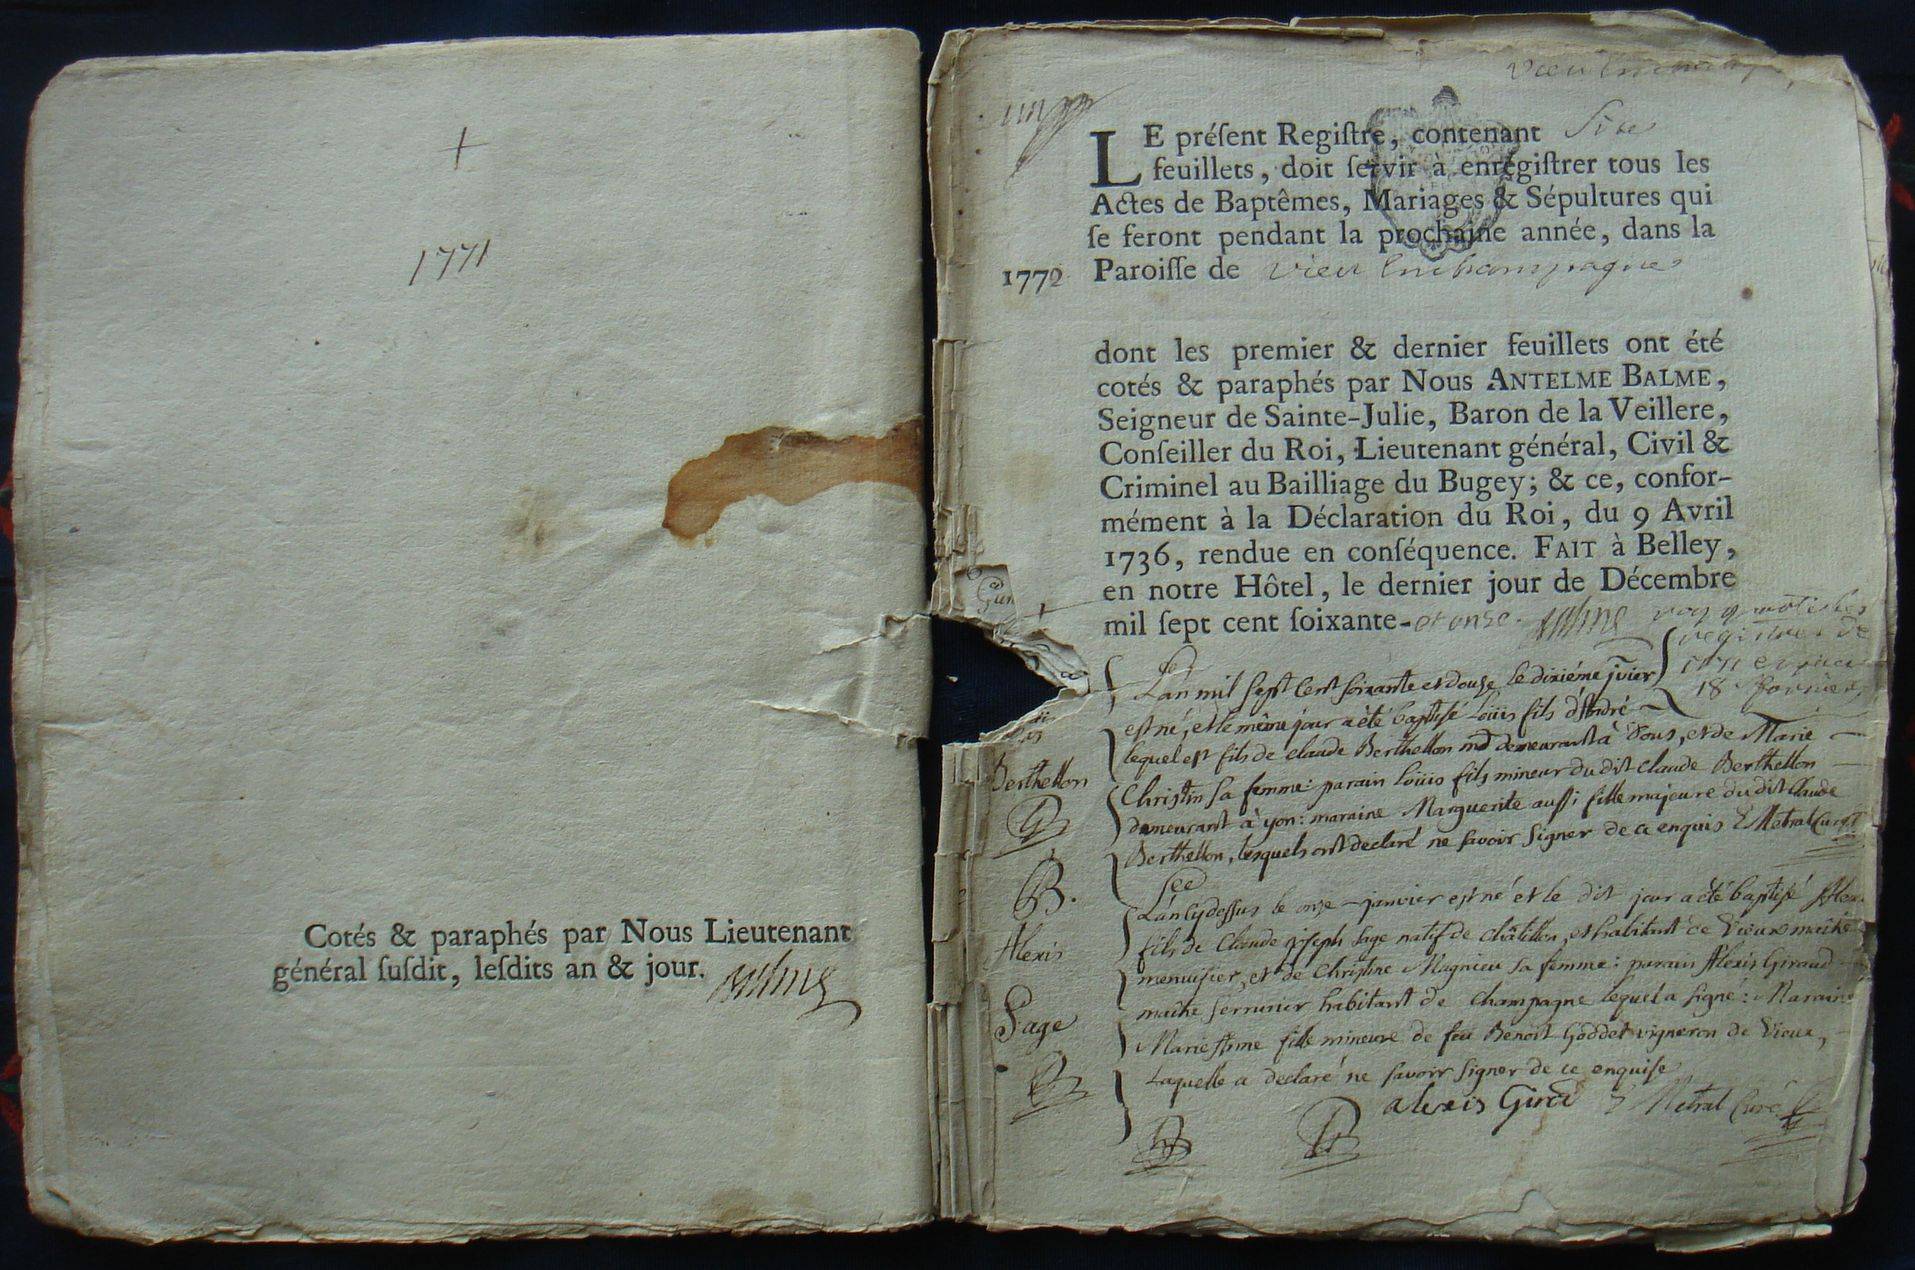 1771
Cotés & paraphés par Nous Lieutenant
général ſuſdit, leſdits an & jour.
Balme
Vieu Enchampagne
LE préſent Regiſtre, contenant Six
feuillets, doit ſervir à enrégiſtrer tous les
Actes de Baptêmes, Mariages & Sépultures qui
ſe feront pendant la prochaine année, dans la
1772 Paroiſſe de Vieu Enchampagne
dont les premier & dernier feuillets ont été
cotés & paraphés par Nous ANTELME BALME,
Seigneur de Sainte-Julie, Baron de la Veillere,
Conſeiller du Roi, Lieutenant général, Civil &
Criminel au Bailliage du Bugey; & ce, confor-
mément à la Déclaration du Roi, du 9 Avril
1736, rendue en conſéquence. FAIT à Belley,
en notre Hôtel, le dernier jour de Décembre
mil ſept cent ſoixante-et onze. Balme
registres de
1771
18 février
L'an mil sept cent soixante et douze le dixiéme jvier
est né, et le même jour a été baptisé Loüis fils d'André
lequel est fils de claude Berthellon md demeurant à yous, et de Marie
Christin sa femme: parain loüis fils mineur du dit claude Berthellon
demeurant à yon: maraine Marguerite aussi fille majeure du dit Claude
Berthellon, lesquels ont declaré ne savoir signer de ce enquis Metral Curé
Berthellon
B.
L'an cy dessus le onze janvier est né et le dit jour a été baptisé Alexis
fils de Claude joseph sage natif de châtillon, et habitant de Vieux maitre
menuisier, et de Christine Magnieu sa femme: parain Alexis Giraud
maitre serrurier habitant de champagne lequel a signé: Maraine
Marie Anne fille mineure de feu Benoit Goddet vigneron de Vieux,
Laquelle a declaré ne savoir signer de ce enquise
Alexis
Sage
alexis Girod Metral Curé